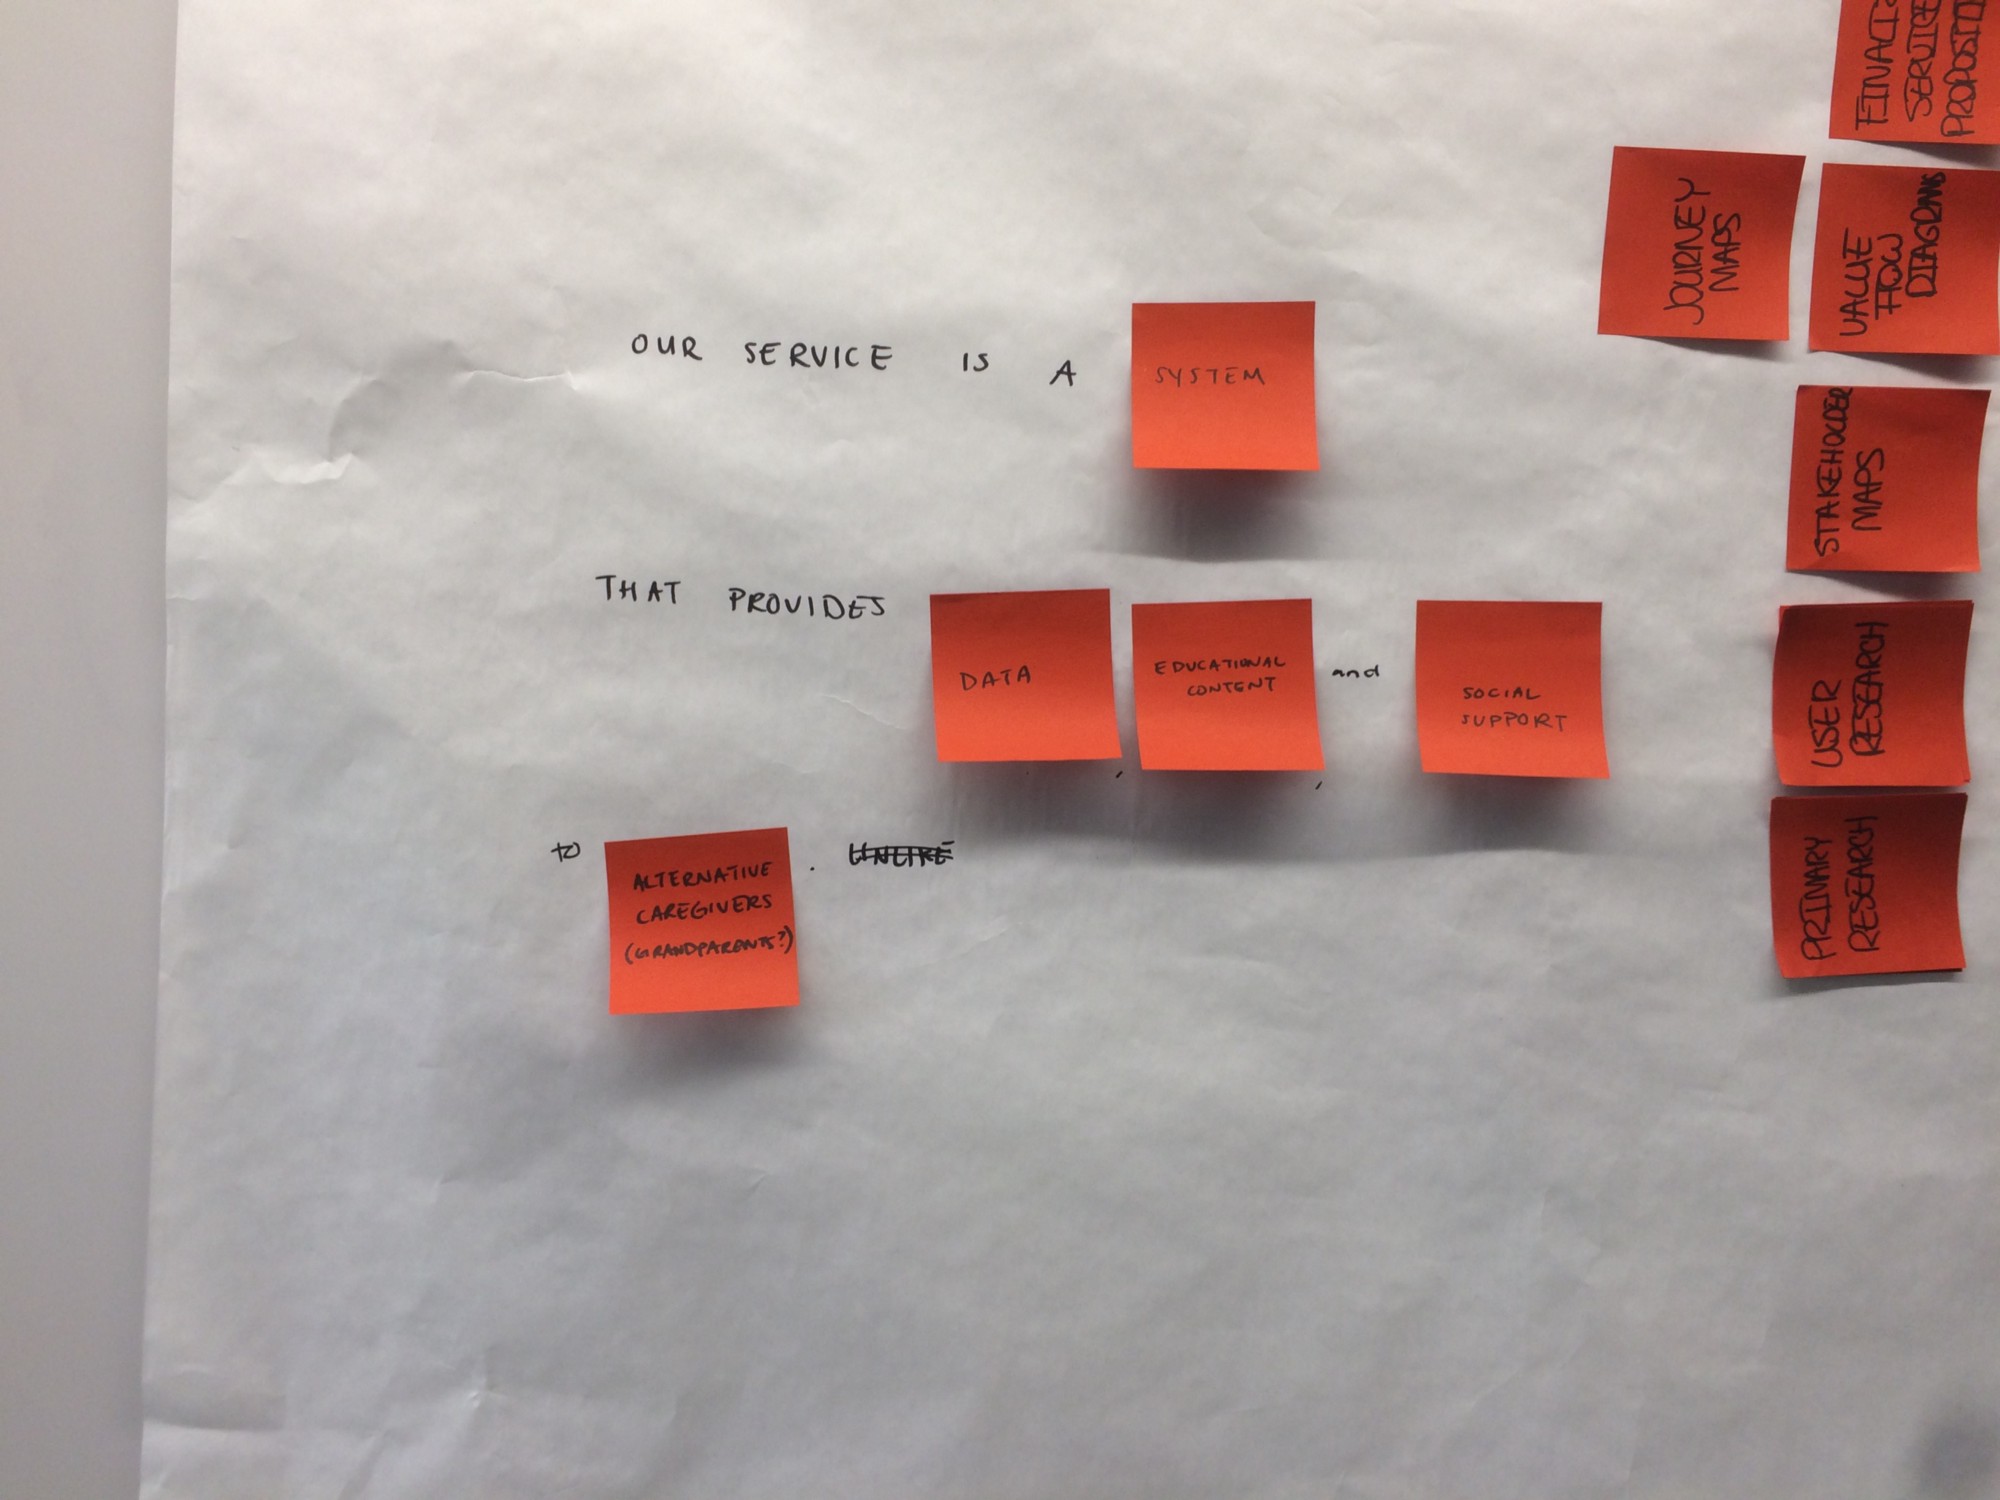 OUR SERVICE IS A SYSTEM
THAT PROVIDES DATA, EDUCATIONAL
CONTENT, and SOCIAL
SUPPORT
to ALTERNATIVE
CAREGIVERS
(GRANDPARENTS?)
. UNLIKE
SERVICE
JOURNEY
MAPS
VALUE
FLOW
DIAGRAMS
STAKEHOLDER
MAPS
USER
RESEARCH
PRIMARY
RESEARCH